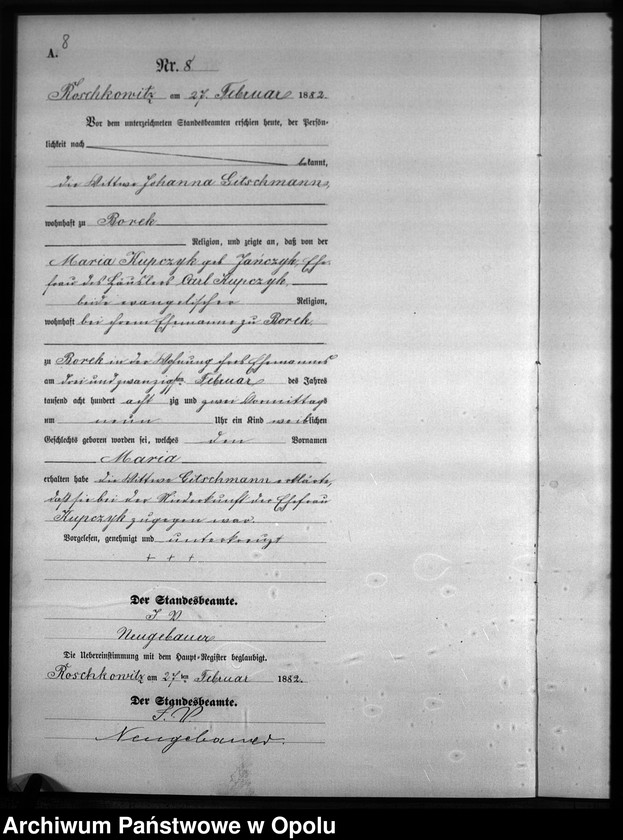 8
A.
Nr. 8
Roschkowitz am 27. Februar 1882.
Vor dem unterzeichneten Standesbeamten erschien heute, der Persön-
lichkeit nach
bekannt,
die Wittwe Johanna Gitschmann,
wohnhaft zu Borek
Religion, und zeigte an, daß von der
Maria Kupczyk geb Jańczyk, Ehe-
frau des Häuslers Carl Kupczyk,
beide evangelischer Religion,
wohnhaft bei ihrem Ehemanne zu Borek,
zu Borek in der Wohnung ihres Ehemannes
am drei und zwanzigsten Februar des Jahres
tausend acht hundert acht zig und zwei Vormittags
um neun Uhr ein Kind weiblichen
Geschlechts geboren worden sei, welches den Vornamen
Maria
erhalten habe die Wittwe Gitschmann erklärte,
daß sie bei der Niederkunft der Ehefrau
Kupczyk zugegen war.
Vorgelesen, genehmigt und unterkreuzt
+ + +
Der Standesbeamte.
I. V
Neugebauer
Die Uebereinstimmung mit dem Haupt-Register beglaubigt.
Roschkowitz am 27ten Februar 1882.
Der Standesbeamte.
I. V
Neugebauer.
Archiwum Państwowe w Opolu